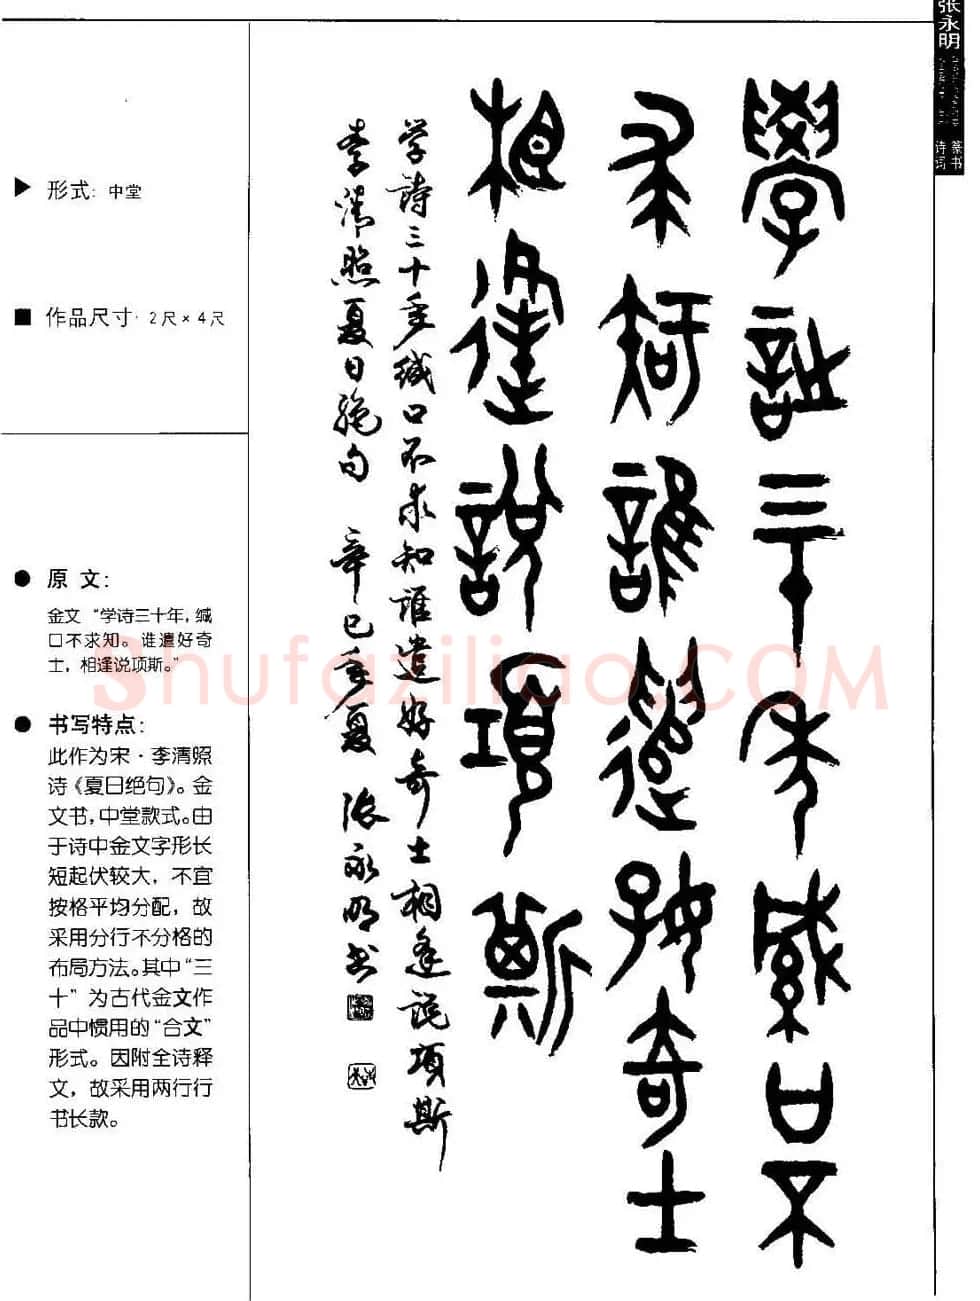 张永明
篆书
诗词
▶ 形式：中堂
■ 作品尺寸：2尺×4尺
● 原文：
金文 “学诗三十年，缄
口不求知。谁遣好奇
士，相逢说项斯。”
● 书写特点：
此作为宋·李清照
诗《夏日绝句》。金
文书，中堂款式。由
于诗中金文字形长
短起伏较大，不宜
按格平均分配，故
采用分行不分格的
布局方法。其中“三
十”为古代金文作
品中惯用的“合文”
形式。因附全诗释
文，故采用两行行
书长款。
學詩三十年緘口不
求知誰遣好奇士
相逢說項斯
学詩三十年缄口不求知誰遣好奇士相逢说項斯
李清照夏日绝句 辛巳年夏 张永明书
Shufaziliao.COM